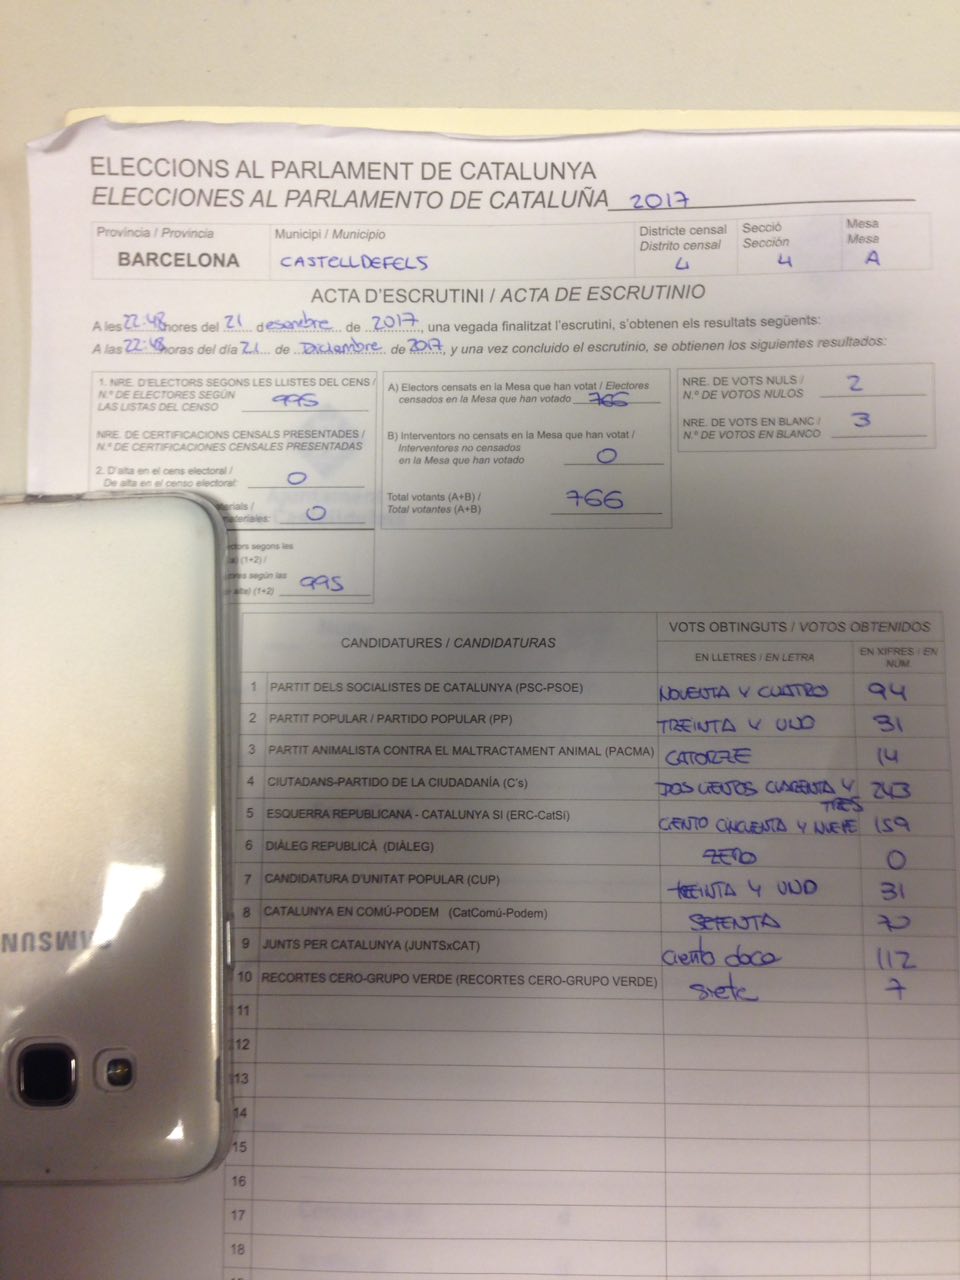 ELECCIONS AL PARLAMENT DE CATALUNYA
ELECCIONES AL PARLAMENTO DE CATALUÑA 2017
Província / Provincia
BARCELONA
Municipi / Municipio
CASTELLDEFELS
Districte censal
Distrito censal
4
Secció
Sección
4
Mesa
Mesa
A
ACTA D'ESCRUTINI / ACTA DE ESCRUTINIO
A les 22:48 hores del 21 desembre de 2017, una vegada finalitzat l'escrutini, s'obtenen els resultats següents:
A las 22:48 horas del día 21 de Diciembre de 2017, y una vez concluido el escrutinio, se obtienen los siguientes resultados:
1. NRE. D'ELECTORS SEGONS LES LLISTES DEL CENS /
N.º DE ELECTORES SEGÚN
LAS LISTAS DEL CENSO 995
NRE. DE CERTIFICACIONS CENSALS PRESENTADES /
N.º DE CERTIFICACIONES CENSALES PRESENTADAS
2. D'alta en el cens electoral /
De alta en el censo electoral: 0
materiales: 0
ctors segons les
(1+2) /
ores según las
alta) (1+2) 995
A) Electors censats en la Mesa que han votat / Electores
censados en la Mesa que han votado 766
B) Interventors no censats en la Mesa que han votat /
Interventores no censados
en la Mesa que han votado 0
Total votants (A+B) /
Total votantes (A+B) 766
NRE. DE VOTS NULS /
N.º DE VOTOS NULOS 2
NRE. DE VOTS EN BLANC /
N.º DE VOTOS EN BLANCO 3
CANDIDATURES / CANDIDATURAS
VOTS OBTINGUTS / VOTOS OBTENIDOS
EN LLETRES / EN LETRA
EN XIFRES / EN
NUM.
1 PARTIT DELS SOCIALISTES DE CATALUNYA (PSC-PSOE) NOVENTA Y CUATRO 94
2 PARTIT POPULAR / PARTIDO POPULAR (PP) TREINTA Y UNO 31
3 PARTIT ANIMALISTA CONTRA EL MALTRACTAMENT ANIMAL (PACMA) CATORZE 14
4 CIUTADANS-PARTIDO DE LA CIUDADANÍA (C's) DOSCIENTOS CUARENTA Y TRES 243
5 ESQUERRA REPUBLICANA - CATALUNYA SI (ERC-CatSí) CIENTO CINCUENTA Y NUEVE 159
6 DIÀLEG REPUBLICÀ (DIÀLEG) ZERO 0
7 CANDIDATURA D'UNITAT POPULAR (CUP) TREINTA Y UNO 31
8 CATALUNYA EN COMÚ-PODEM (CatComú-Podem) SETENTA 70
9 JUNTS PER CATALUNYA (JUNTSxCAT) ciento doce 112
10 RECORTES CERO-GRUPO VERDE (RECORTES CERO-GRUPO VERDE) siete 7
11
12
13
14
15
16
17
18
SAMSUNG